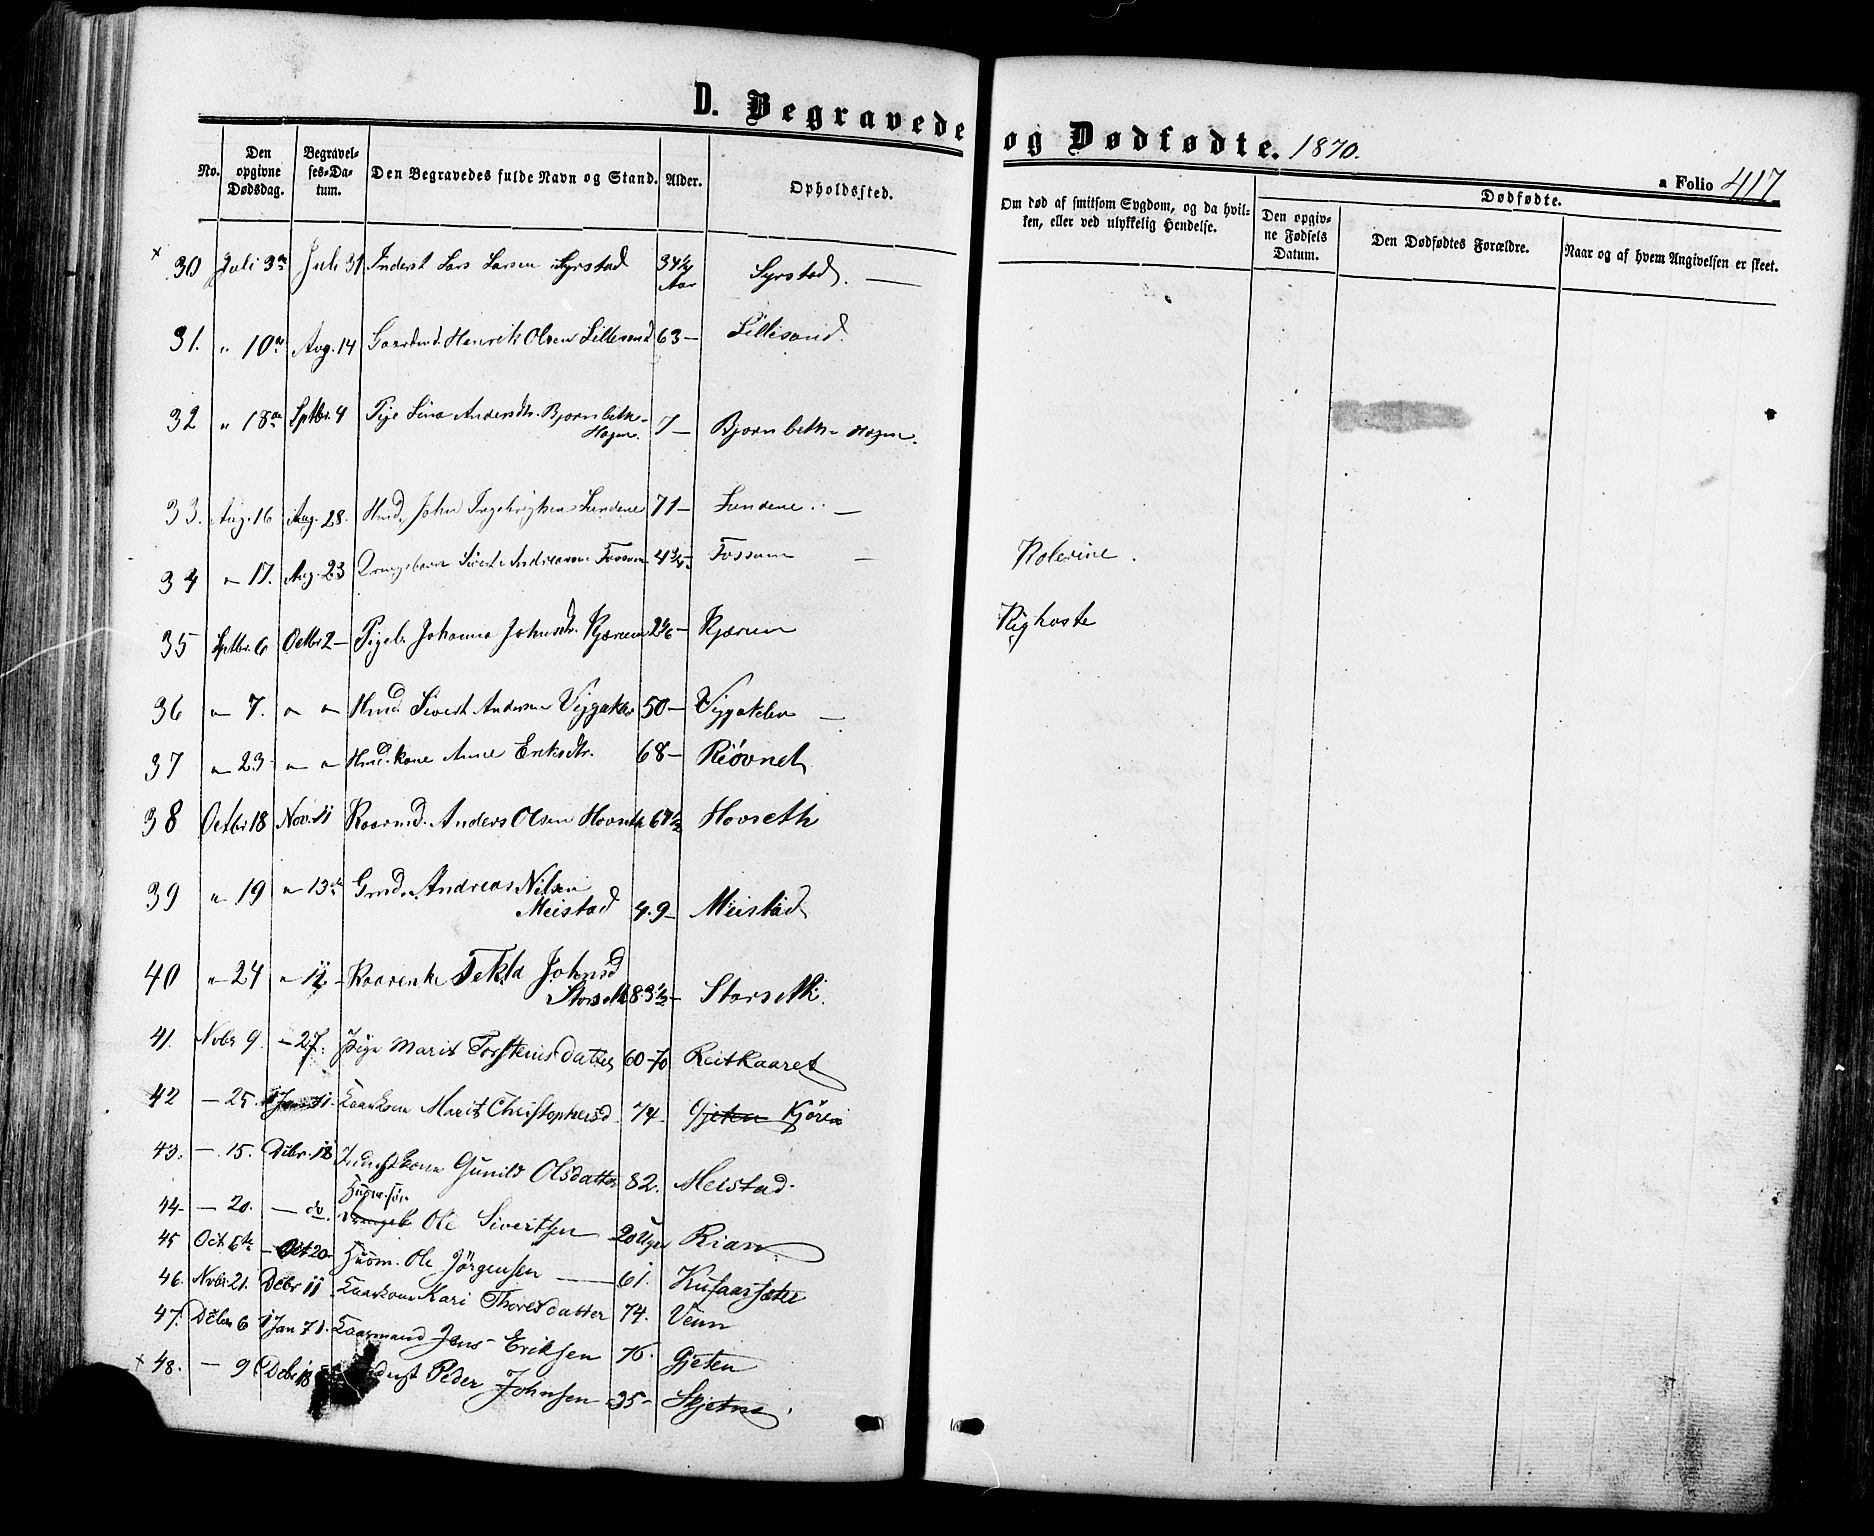 D. Begravede og Dødfødte. 1870.
a Folio 417
No. Den opgivne Dødsdag. Begravelses-Datum. Den Begravedes fulde Navn og Stand. Alder. Opholdssted. Om død af smitsom Sygdom, og da hvilken, eller ved ulykkelig Hendelse. Dødfødte. Den opgivne Fødsels Datum. Den Dødfødtes Forældre. Naar og af hvem Angivelsen er skeet.
30 Juli 3 Juli 31 Inderst Lars Larsen Syrstad 34 1/4 Aar Syrstad. —
31. " 10 Aug. 14 Gaardmd. Henrik Olsen Lillesand 63 — Lillesand.
32 " 18 Sptbr. 4 Pige Sina Andersdtr. Bjørnbeth-
Hagen. 7 — Bjørnbeth- Hagen.
33. Aug. 16 Aug. 28. Hmd. John Ingebrigtsen Lundene 71 — Lundene. —
34 " 17. Aug. 23 Drengebarn Sivert Andreasen Fossum 4 3/4 — Fossum — Kolerine.
35 Sptbr. 6 Octbr 2 — Pigeb. Johanna Johnsdtr. Kjæren 2 1/6 — Kjæren Kighoste
36 " 7. " " Hmd. Sivert Andersen Viggaklev 50 — Viggaklev —
37 " 23 " " Hmd. kone Anne Eriksdtr. 68 — Riøvnet
38 Octbr 18 Nov. 11 Kaarmd. Anders Olsen Hovseth 67 1/2 Hovseth
39 " 19 " 13 Gmd. Andreas Nilsen
Meistad 49 — Meistad
40 " 24 " Kaarenke Tekla Johnsd
Storseth 83 1/2 — Storseth.
41. Nvbr 9. — 27. Pige Marit Torsteinsdatter 60-70 Reitkaaret
42 — 25. Jan 11. Kaarkone Marit Christophersd 74. Gjeten Kjøren
43. — 15. Dcbr. 18 Inderstkone Gunild Olsdatter 82. Meistad.
Husm. søn
44 — 20. — do. Drengeb Ole Sivertsen 20 Uger Rian
45 Oct 6te — Oct 20 — Husm. Ole Jörgensen — 61. Kufaassæter
46. Nvbr. 21. Dcbr 11 Kaarkone Kari Thoresdatter 74. Venn
47. Dcbr 6 1 Jan 71. Kaarmand Jens Eriksen 76. Gjeten
48. — 9 Dcbr 18 Inderst Peder Johnsen 35 — Skjetne.